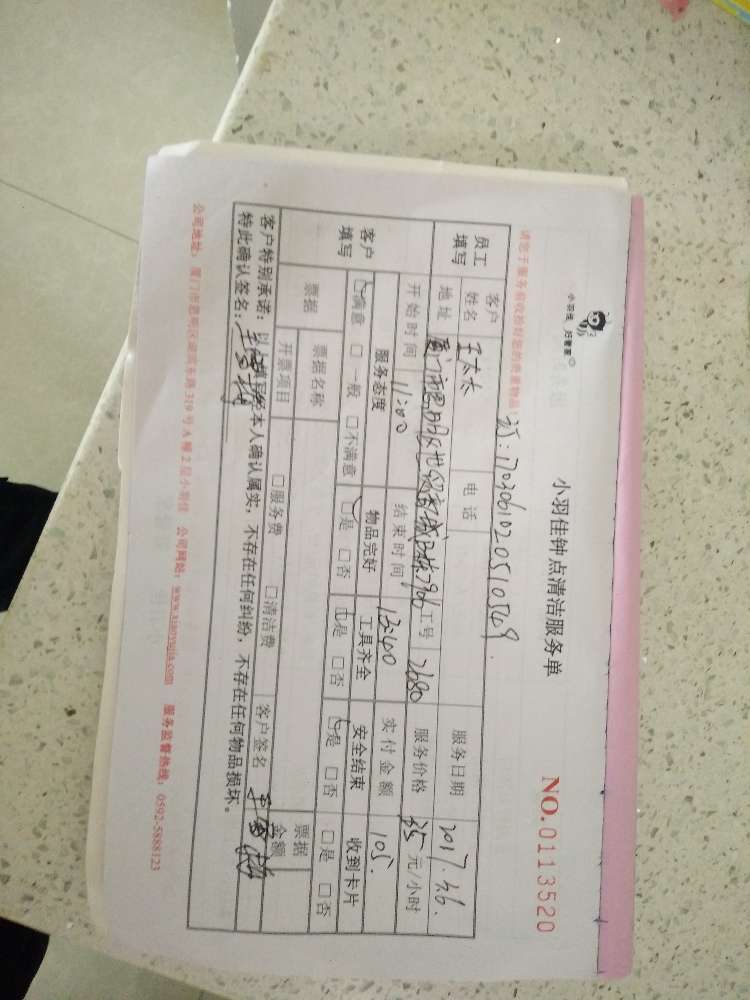 小羽佳 好管家
小羽佳钟点清洁服务单
NO.0113520
请您于服务前收拾好您的贵重物品!
订:1703061020510549
员工填写 客户姓名 王太太 电话 服务日期 2017.3.6.
地址 厦门市思明区世纪嘉城B栋2906 工号 2680 服务价格 35 元/小时
开始时间 11:00 结束时间 13:40 实付金额 105.
客户填写 服务态度 物品完好 工具齐全 安全结束 收到卡片
□满意 □一般 □不满意 □是 □否 □是 □否 □是 □否 □是 □否
票据 票据名称 票据金额
开票项目 □服务费 □清洁费 客户签名
客户特别承诺:以上填写经本人确认属实,不存在任何纠纷,不存在任何物品损坏。
特此确认签名:
公司地址:厦门市思明区湖滨东路319号A幢2层小羽佳 公司网站:www.xiaoyujia.com 服务监督热线:0592-5888123